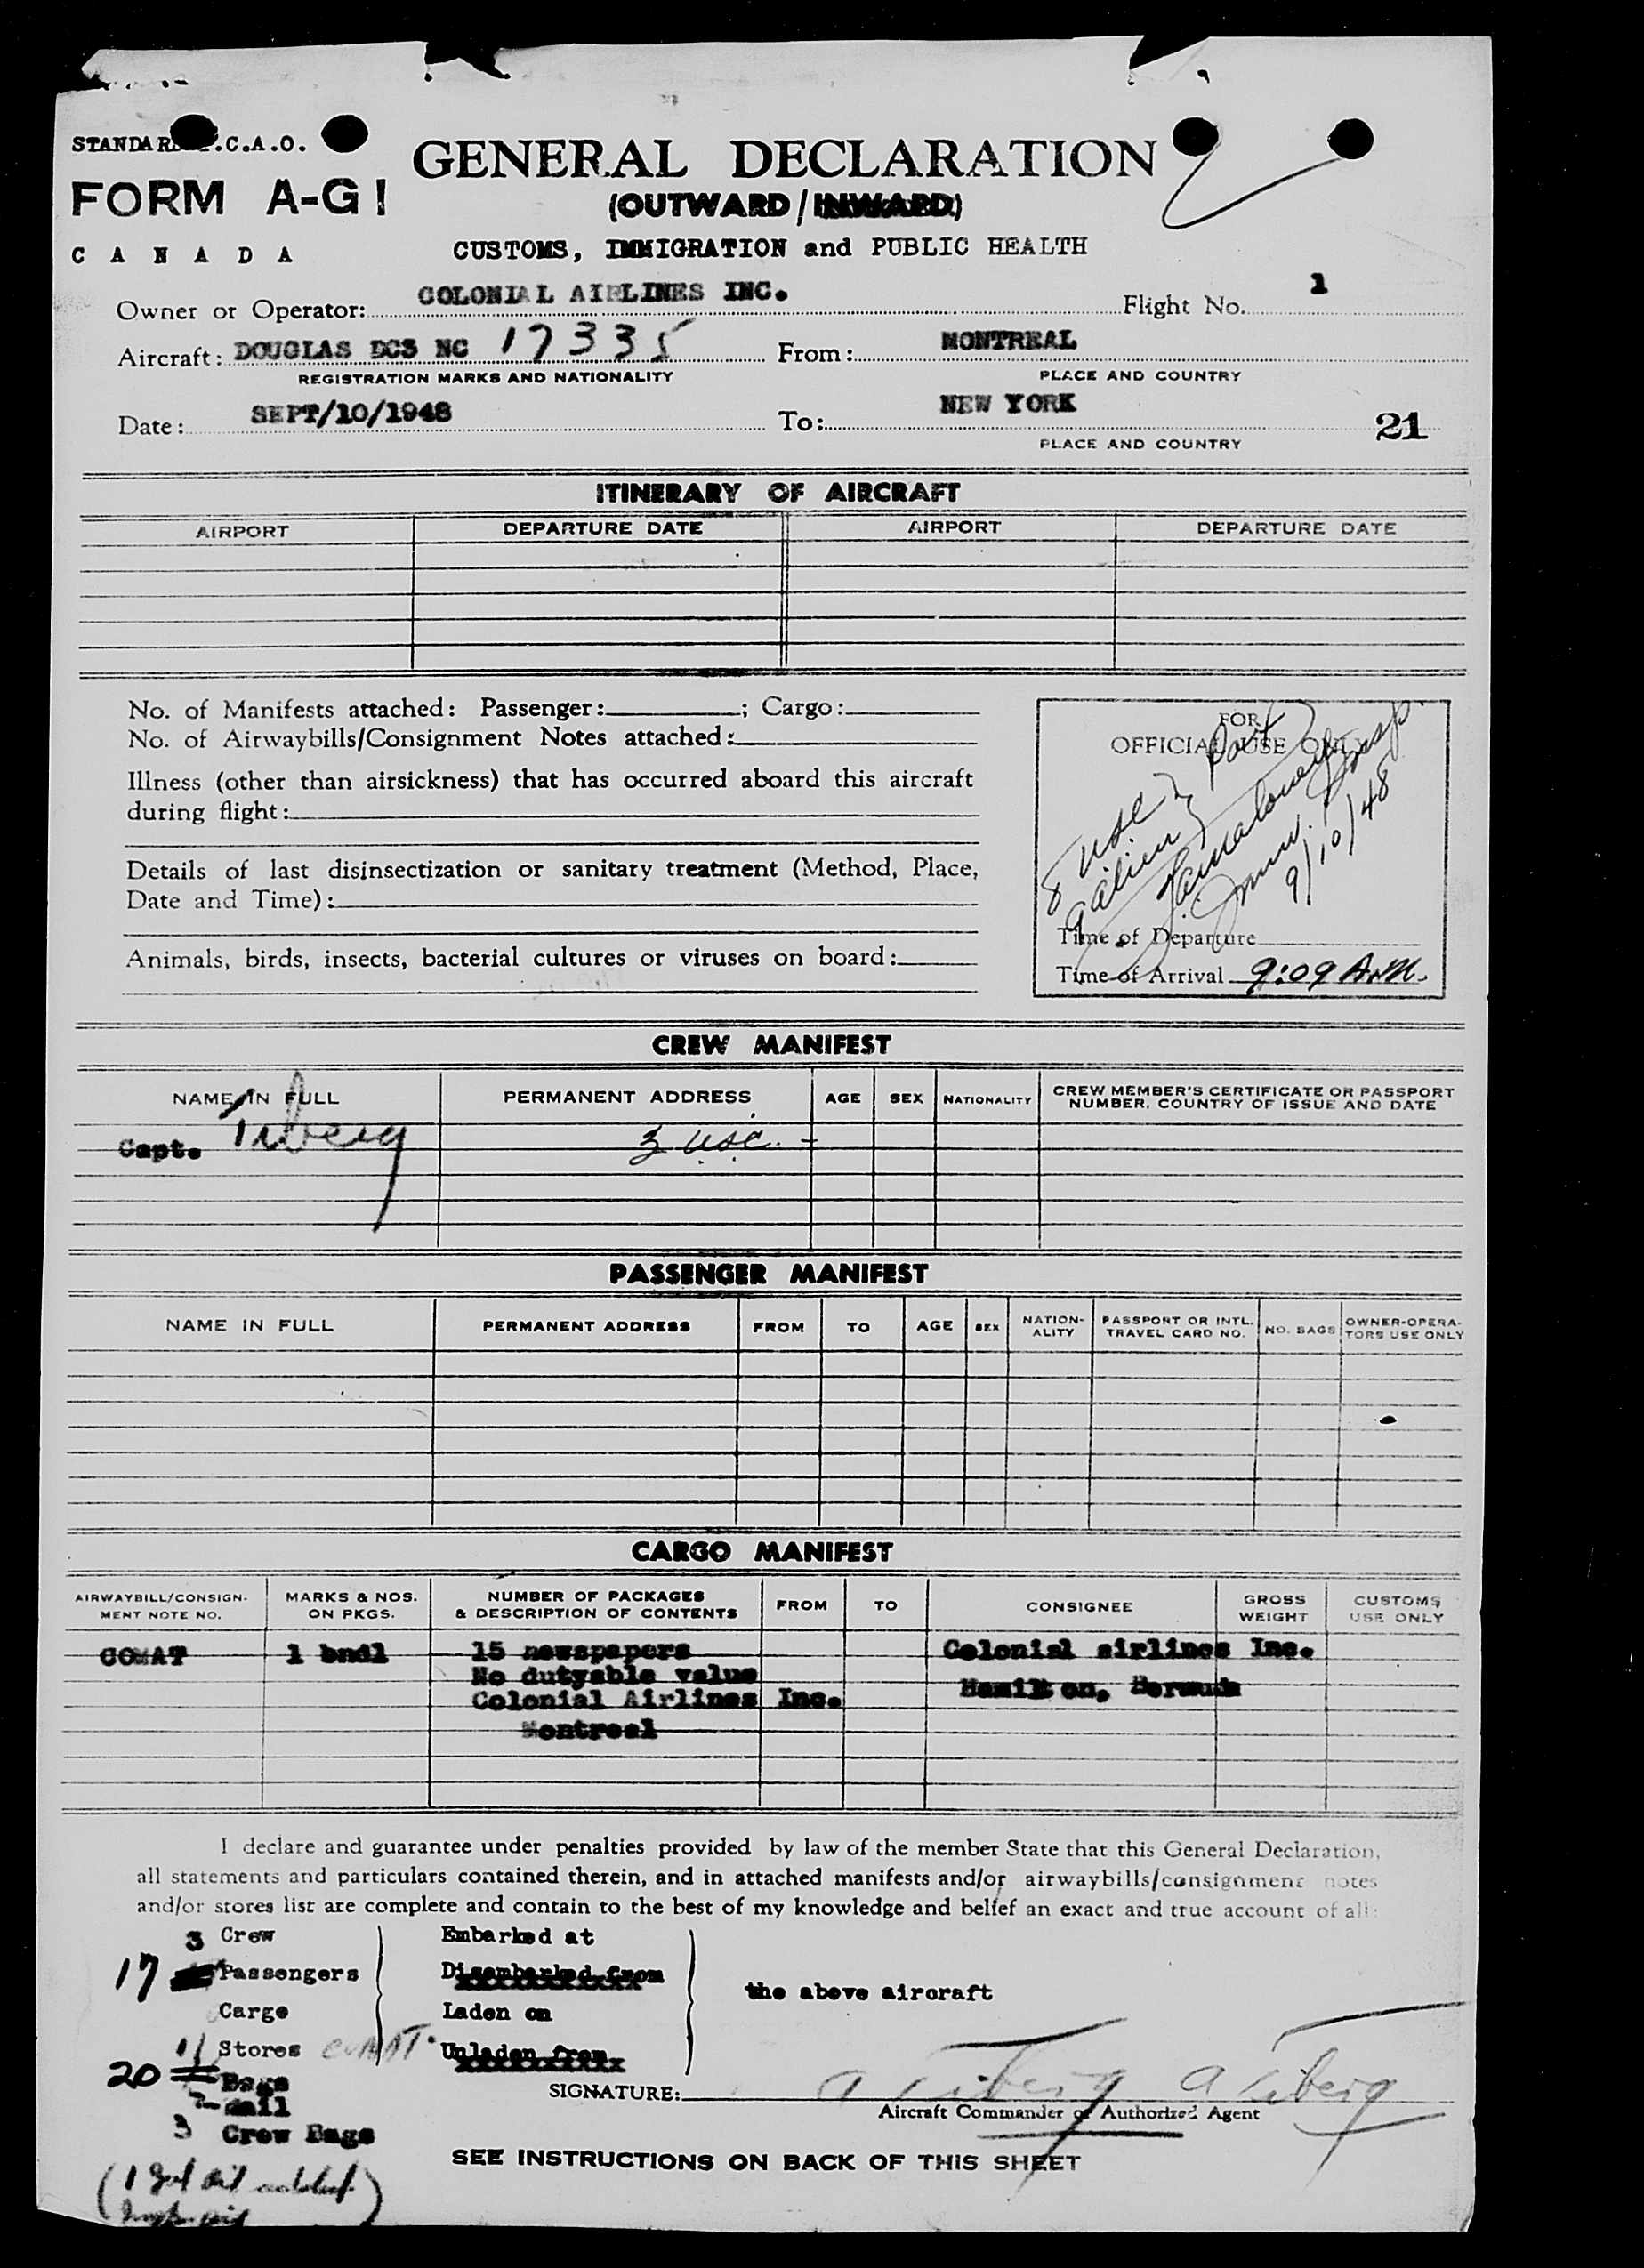 STANDARD I.C.A.O.
FORM A-G1
CANADA
GENERAL DECLARATION
(OUTWARD/INWARD)
CUSTOMS, IMMIGRATION and PUBLIC HEALTH
Owner or Operator: COLONIAL AIRLINES INC. Flight No. 1
Aircraft: DOUGLAS DC3 NC 17335 From: MONTREAL
REGISTRATION MARKS AND NATIONALITY PLACE AND COUNTRY
Date: SEPT/10/1948 To: NEW YORK 21
PLACE AND COUNTRY
ITINERARY OF AIRCRAFT
AIRPORT DEPARTURE DATE AIRPORT DEPARTURE DATE
No. of Manifests attached: Passenger: ; Cargo:
No. of Airwaybills/Consignment Notes attached:
Illness (other than airsickness) that has occurred aboard this aircraft
during flight:
Details of last disinsectization or sanitary treatment (Method, Place,
Date and Time):
Animals, birds, insects, bacterial cultures or viruses on board:
FOR
OFFICIAL USE ONLY
8 usc
9 alien
9/10/48
Time of Departure
Time of Arrival 9:09 A.M.
CREW MANIFEST
NAME IN FULL PERMANENT ADDRESS AGE SEX NATIONALITY CREW MEMBER'S CERTIFICATE OR PASSPORT
NUMBER, COUNTRY OF ISSUE AND DATE
Capt. Tiberg 3 usc. -
PASSENGER MANIFEST
NAME IN FULL PERMANENT ADDRESS FROM TO AGE SEX NATION-
ALITY PASSPORT OR INTL.
TRAVEL CARD NO. NO. BAGS OWNER-OPERA-
TORS USE ONLY
CARGO MANIFEST
AIRWAYBILL/CONSIGN-
MENT NOTE NO. MARKS & NOS.
ON PKGS. NUMBER OF PACKAGES
& DESCRIPTION OF CONTENTS FROM TO CONSIGNEE GROSS
WEIGHT CUSTOMS
USE ONLY
COMAT 1 bndl 15 newspapers Colonial airlines Inc.
No dutyable value
Colonial Airlines Inc. Hamilton, Bermuda
Montreal
I declare and guarantee under penalties provided by law of the member State that this General Declaration,
all statements and particulars contained therein, and in attached manifests and/or airwaybills/consignment notes
and/or stores list are complete and contain to the best of my knowledge and belief an exact and true account of all:
3 Crew Embarked at
17 Passengers Disembarked from
the above aircraft
Cargo Laden on
11 Stores COMAT Unladen from
20 Bags
2 Mail
3 Crew Bags
SIGNATURE: a Tiberg a Tiberg
Aircraft Commander or Authorized Agent
SEE INSTRUCTIONS ON BACK OF THIS SHEET